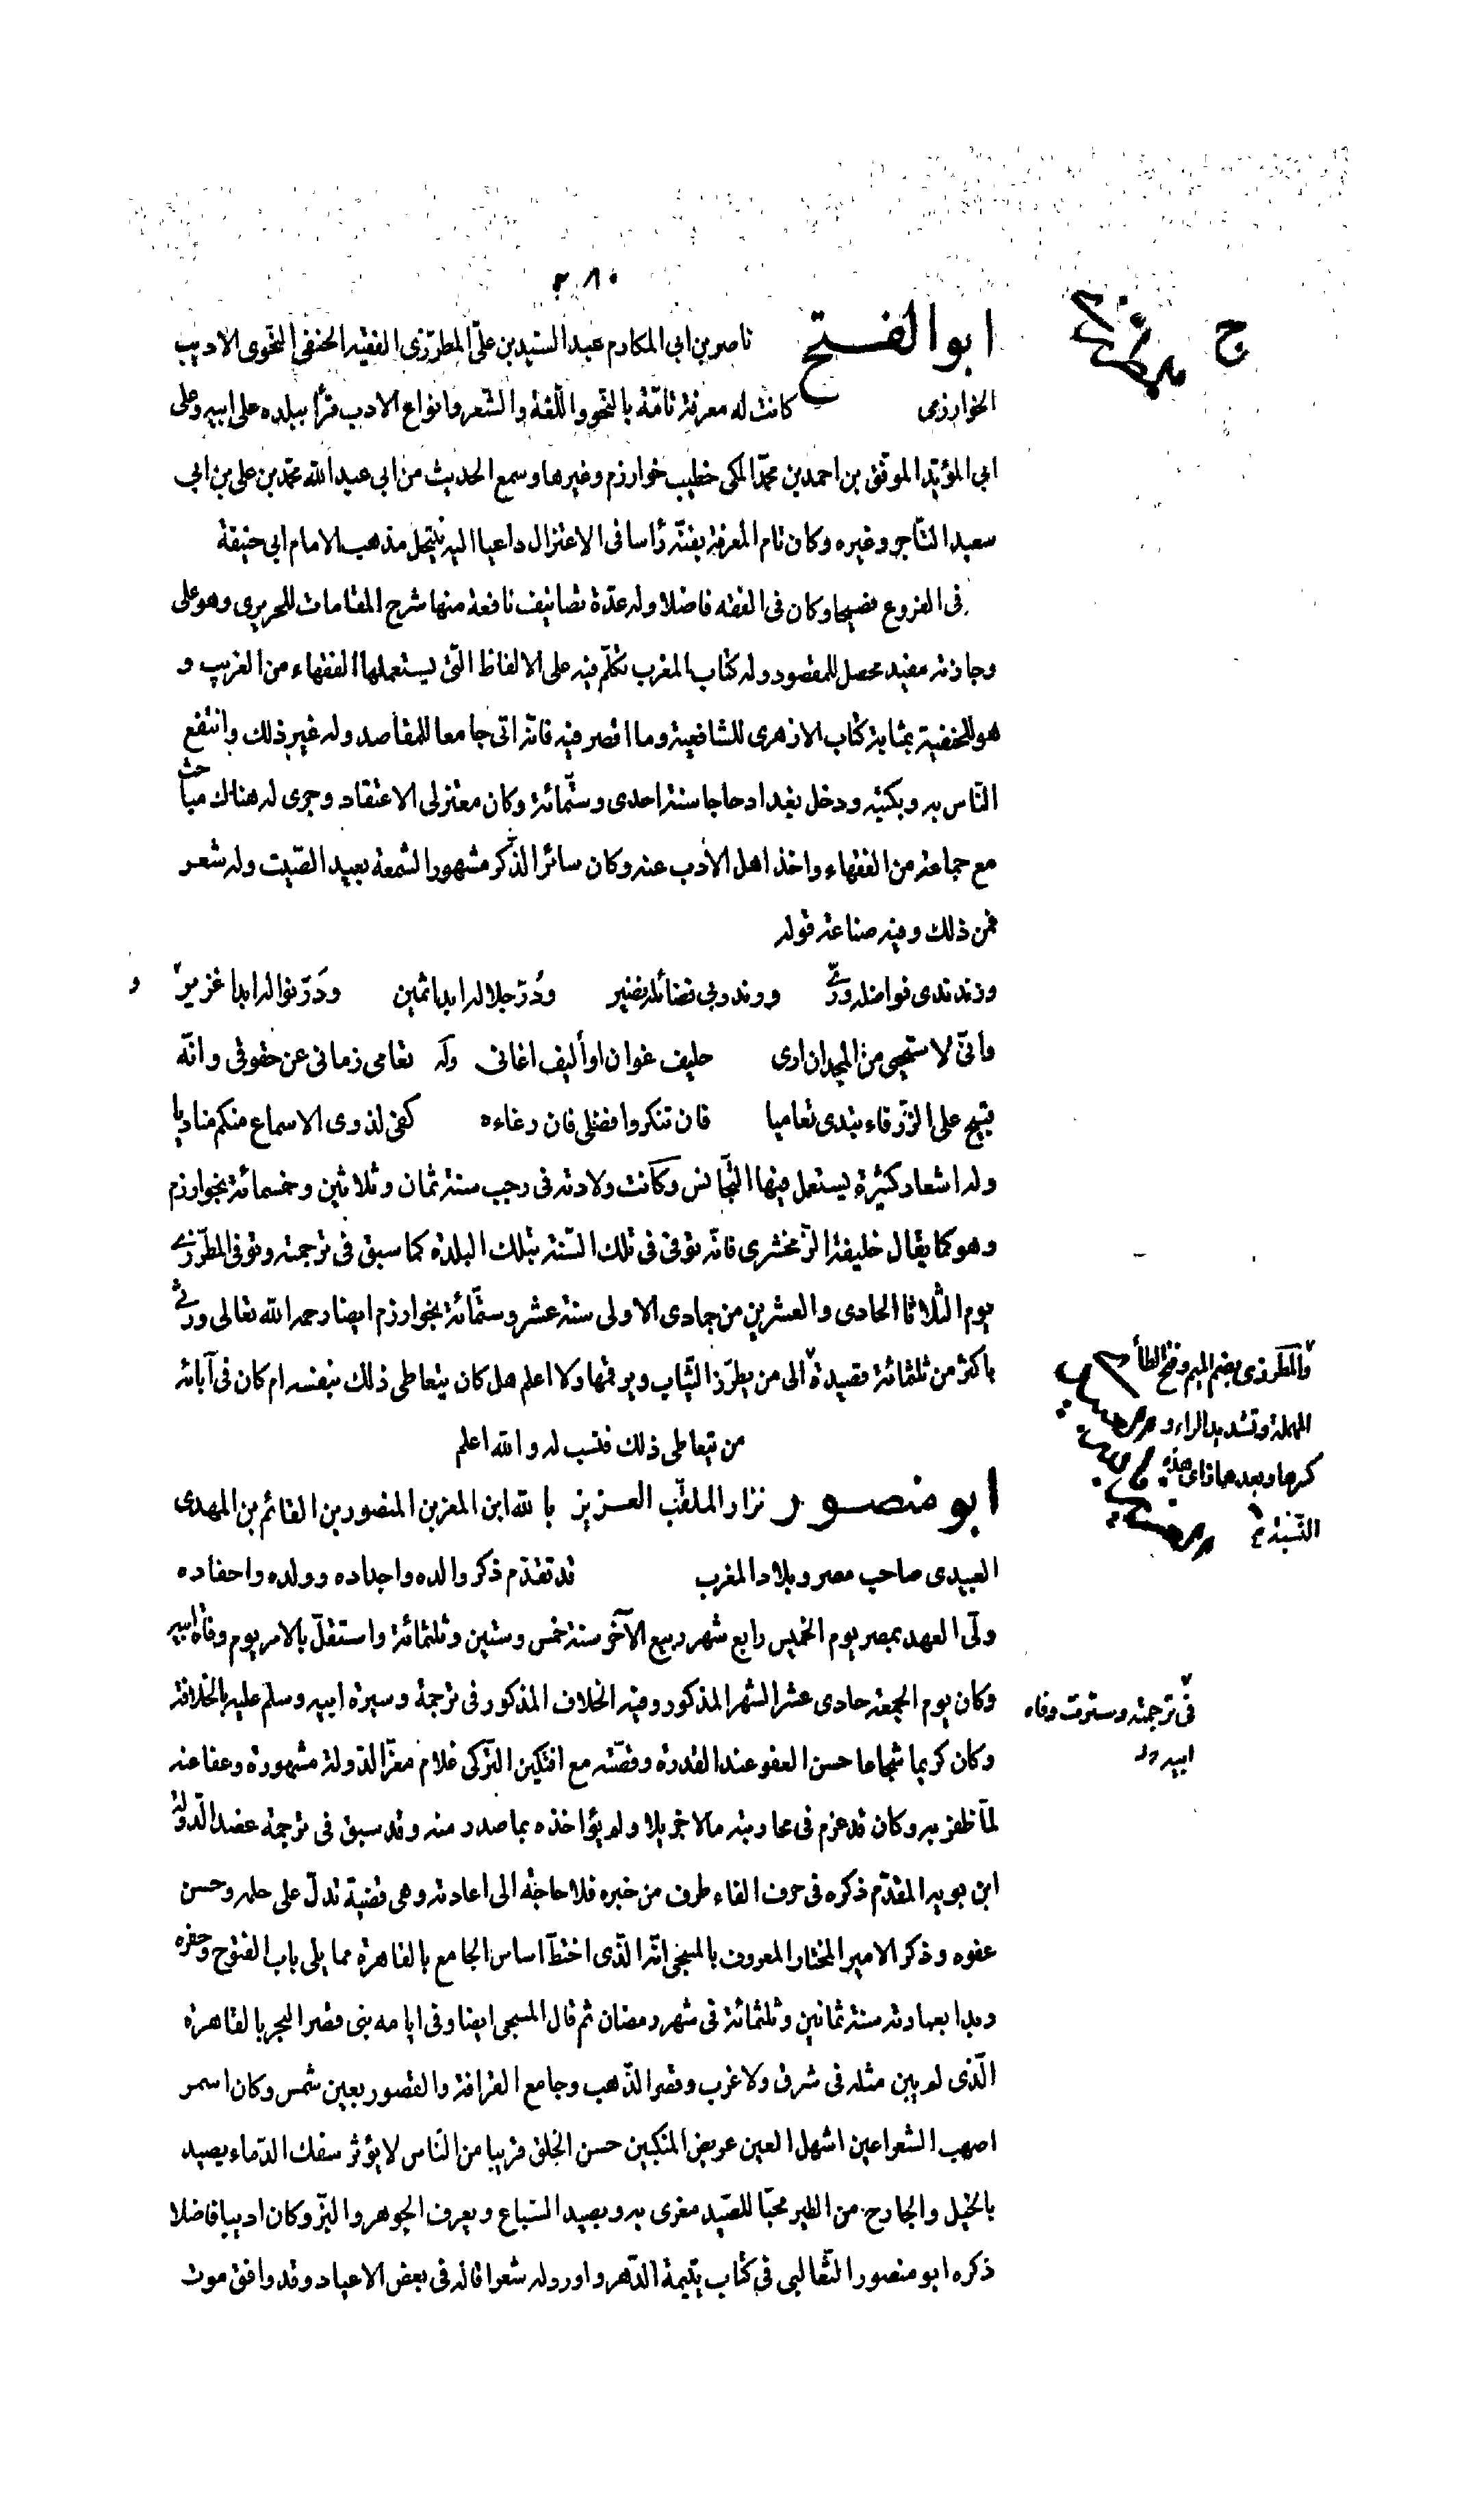 ٢٨٠
ابو الفتح ناصر بن ابى المكارم عبد السيد بن علىّ المطرّزى الفقيه الحنفى النحوى الاديب
الخوارزمى كانت له معرفة تامّة بالنحو واللّغة والشعر وانواع الادب قرأ ببلده على ابيه وعلى
ابي المؤيّد الموفّق بن احمد بن محمّد المكى خطيب خوارزم وغيرها وسمع الحديث من ابى عبد الله محمّد بن على بن ابى
سعيد التّاجر وغيره وكان تام المعرفة بفنّه رأسا فى الاعتزال داعيا اليه ينتحل مذهب الامام ابى حنيفة
فى الفروع فصيحا وكان فى الفقه فاضلا وله عدّة تصانيف نافعة منها شرح المقامات للحريرى وهو على
وجازته مفيد محصل للمقصود وله كتاب المغرب تكلّم فيه على الالفاظ التّى يستعملها الفقهاء من الغريب و
هو للحنفية بمثابة كتاب الازهرى للشافعية وما اقصر فيه فانّه اتى جامعا للمقاصد وله غير ذلك وانتفع
النّاس به وبكتبه ودخل بغداد حاجا سنة احدى وستّمائة وكان معتزلى الاعتقاد وجرى له هناك مباحث
مع جماعة من الفقهاء واخذ اهل الأدب عنه وكان سائر الذّكر مشهور السّمعة بعيد الصّيت وله شعر
فمن ذلك وفيه صناعة قوله
وزند ندى فواضله ورىّ ورند ربى فضائله نضير ودُرّ جلاله ابدا ثمين ودَرّ نواله ابدا غزير و
وانىّ لا ستحيى من المجد ان ارى حليف غوان او أليف اغانى وله تعامى زمانى عن حقوقى وانّه
قبيح على الزّرقاء تبدى تعاميا فان تنكروا فضلى فان رغاءه كفى لذوى الاسماع منكم مناديا
وله اشعار كثيرة يستعمل فيها التّجانس وكانت ولادته فى رجب سنة ثمان وثلاثين وخمسمائة بخوارزم
وهو كما يقال خليفة الزّمخشرى فانّه توفى فى تلك السّنة بتلك البلدة كما سبق فى ترجمته وتوفى المطرّزى
يوم الثّلاثا الحادى والعشرين من جمادى الاولى سنة عشر وستّمائة بخوارزم ايضا رحمه الله تعالى ورثى
باكثر من ثلثمائة قصيدة الى من يطرّز الثّياب ويرقمها ولا اعلم هل كان يتعاطى ذلك بنفسه ام كان فى آبائه
من يتعاطى ذلك فنسب له والله اعلم
والمطرزى بضم الميم وفتح الطاء
المهملة وتشديد الراء و
كسرها وبعدها زاى هذه
النّسبة
ابو منصور نزار الملقّب العزيز بالله ابن المعز بن المنصور بن القائم بن المهدى
العبيدى صاحب مصر وبلاد المغرب قد تقدّم ذكر والده واجداده وولده واحفاده
ولّى العهد بمصر يوم الخميس رابع شهر ربيع الآخر سنة خمس وستين وثلثمائة واستقلّ بالامر يوم وفاة ابيه
وكان يوم الجمعة حادى عشر الشهر المذكور وفيه الخلاف المذكور فى ترجمة وسيرة ابيه وسلم عليه بالخلافة
فى ترجمته وسترت وفاه
ابيه
وكان كريما شجاعا حسن العفو عند القدرة وقصّته مع افتكين التّركى غلام معزّ الدّولة مشهورة وعفا عنه
لمّا ظفر به وكان قد غرم فى محاربته مالا جزيلا ولم يؤاخذه بما صدر منه وقد سبق فى ترجمة عضد الدّولة
ابن بويه المقدّم ذكره فى حرف الفاء طرف من خبره فلا حاجة الى اعادته وهى قضية تدلّ على حلمه وحسن
عفوه وذكر الامير المختار المعروف بالمسبحى انّه الذّى اختطّ اساس الجامع بالقاهرة مما يلى باب الفتوح وحفره
وبدا بعمارته سنة ثمانين وثلثمائة فى شهر رمضان ثم قال المسبحى ايضا وفى ايامه بنى قصر البحر بالقاهرة
الّذى لم يبن مثله فى شرق ولا غرب وقصر الذّهب وجامع القرافة والقصور بعين شمس وكان اسمر
اصهب الشعر اعين اشهل العين عريض المنكبين حسن الخلق قريبا من النّاس لا يؤثر سفك الدّماء بصيرا
بالخيل والجارح من الطير محبّا للصّيد مغرى به وبصيد السّباع ويعرف الجوهر والبزّ وكان اديبا فاضلا
ذكره ابو منصور الثّعالبى فى كتاب يتيمة الدّهر واورد له شعرا قاله فى بعض الاعياد وقد وافق موت